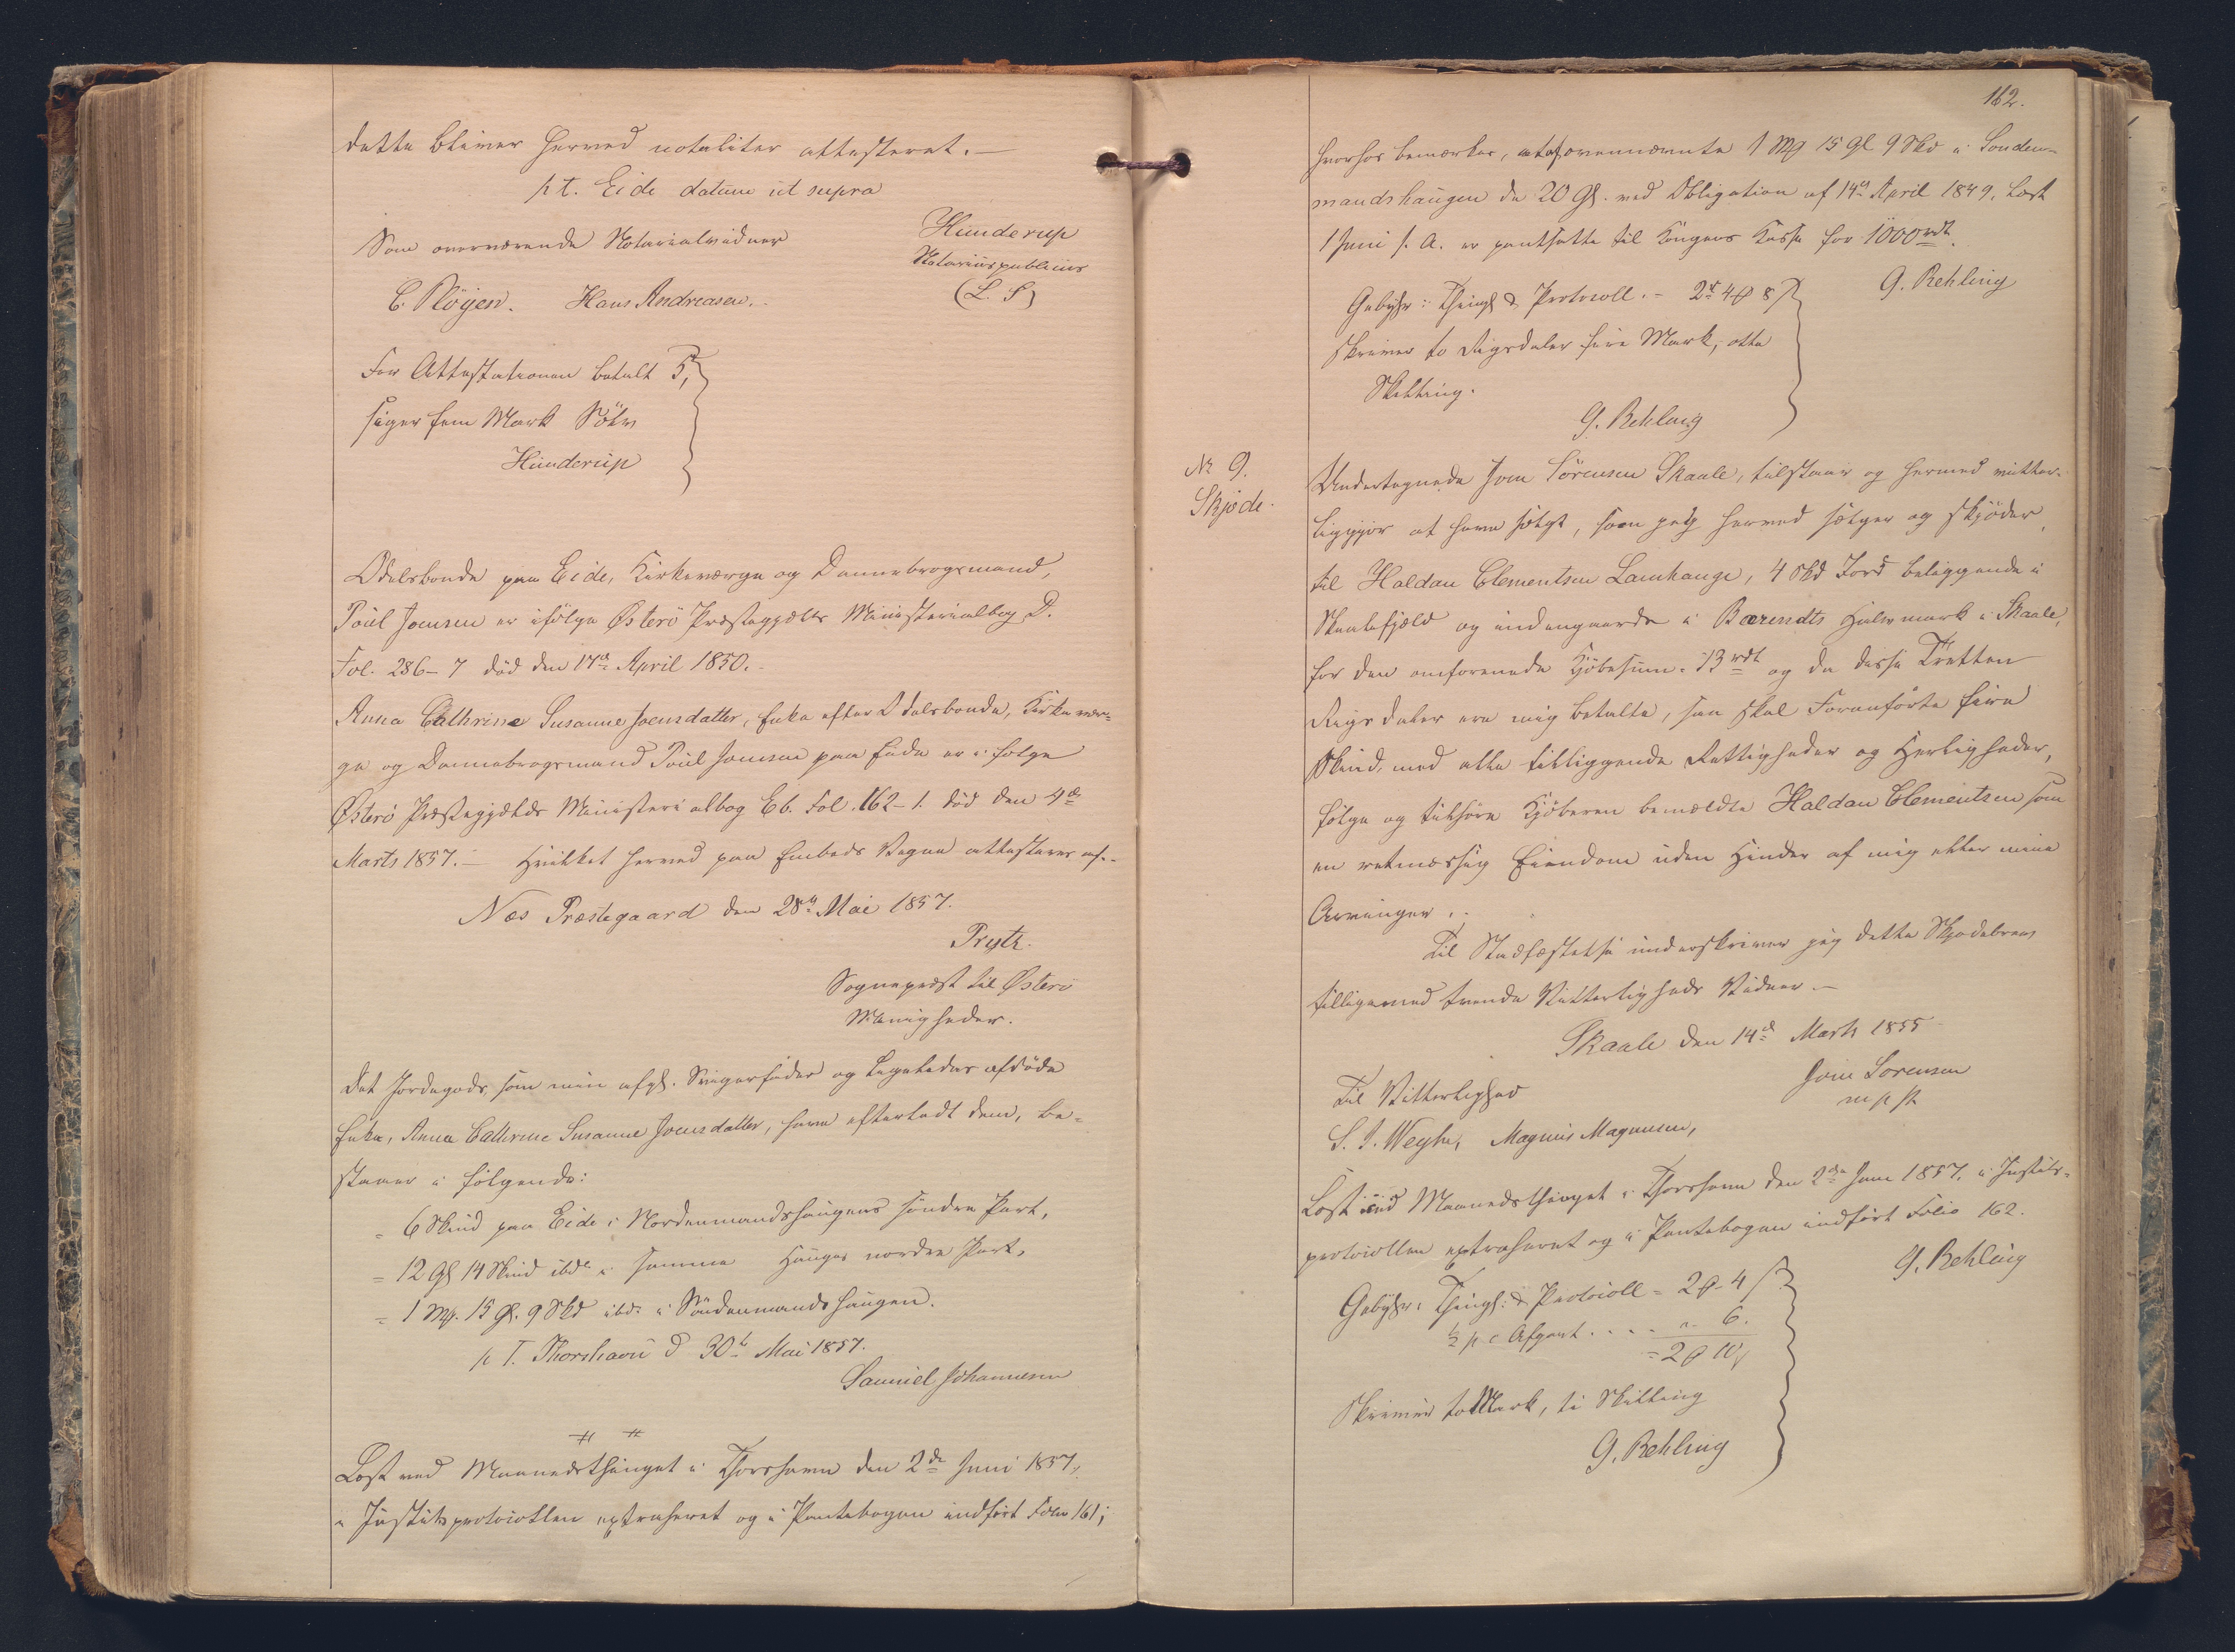 dette bliver herved notaliter attesteret.—
pt. Eide datum ut supra
Som overværende Notarialvidner
Hunderup
Notarius publicus
(L. S)
C. Pløyen. Hans Andreasen.
For Attestationen betalt 5,
siger fem Mark Sölv
Hunderup
Odelsbonde paa Eide, Kirkeværge og Dannebrogsmand,
Poul Joensen er ifölge Østerö Præstegjælds Ministerialbog D.
Fol. 286–7 död den 17de April 1850.
Anna Cathrine Susanne Joensdatter, Enke efter Odelsbonde, Kirkevær-
ge og Dannebrogsmand Poul Joensen paa Eide er i fölge
Østerö Præstegjælds Ministerialbog Eb. Fol. 162–1. död den 4de
Marts 1857.— Hvilket herved paa Embeds Vegne attesteres af.
Næs Præstegaard den 28de Mai 1857.
Prytz.
Sognepræst til Østerö
Menigheder.
Det Jordegods, som min afgl. Svigerfader og Ligeledes afdöde
Enke, Anna Cathrine Susanne Joensdatter, have efterladt dem, be-
staaer i fölgende:
= 6 Skind paa Eide i Nordenmandshaugens söndre Part,
= 12 Gl 14 Skind ibd i samme Hauges nordre Part,
= 1 Mk. 15 Gl. 9 Skd ibd. i Söndenmandshaugen.
p T. Thorshavn d 30te Mai 1857.
Samuel Johannesen
Læst ved Maanedsthinget i Thorshavn den 2de Juni 1857,
i Justitsprotocollen extraheret og i Pantebogen indfört Folio 161;
162.
hvorhos bemærkes, at af ovennævnte 1 Mk 15 Gl 9 Skd i Sonden-
mandshaugen de 20 Gl. ved Obligation af 14de April 1849, læst
1 Juni s. A. er pantsatte til Kongens Kasse for 1000 rdl.
G. Rehling
Gebyhr: Thingl & Protocoll. – 2rd 4 8
skriver to Rigsdaler fire Mark, otte
Skilling.
G. Rehling
No 9.
Skjöde.
Undertegnede Joen Sörensen Skaale, tilstaaer og herved vitter-
liggjör at have solgt, som jeg herved sælger og skjöder
til Haldan Clementsen Lamhauge, 4 Skd Jord beliggende i
Skaalefjeld og indengaards i Bærendts Halvmark i Skaale,
for den omforenede Kjöbesum. 13 rdl og da disse Tretten
Rigsdaler ere mig betalte, saa skal Foranförte fire
Skind, med alle tilliggende Rettigheder og Herligheder,
fölge og tilhöre Kjöberen bemældte Haldan Clementsen som
en retmæssig Eiendom uden Hinder af mig eller mine
Arvinger.
Til Stadfæstelse underskriver jeg dette Skjödebrev
tilligemed tvende Vitterligheds Vidner.—
Skaale den 14de Marts 1855
Joen Sorensen
m p p.
Til Vitterlighed
S. J. Weyhe, Magnus Magnusen,
Læst ved Maanedsthinget i Thorshavn den 2den Juni 1857, i Justits-
protocollen extraheret og i Pantebogen indfört Folio 162.
G. Rehling
Gebyhr: Thingl: & Protocoll = 2 – 4
½ p c Afgivt . . . . " 6.
= 2 10
Skriver to Mark, ti Skilling
G. Rehling